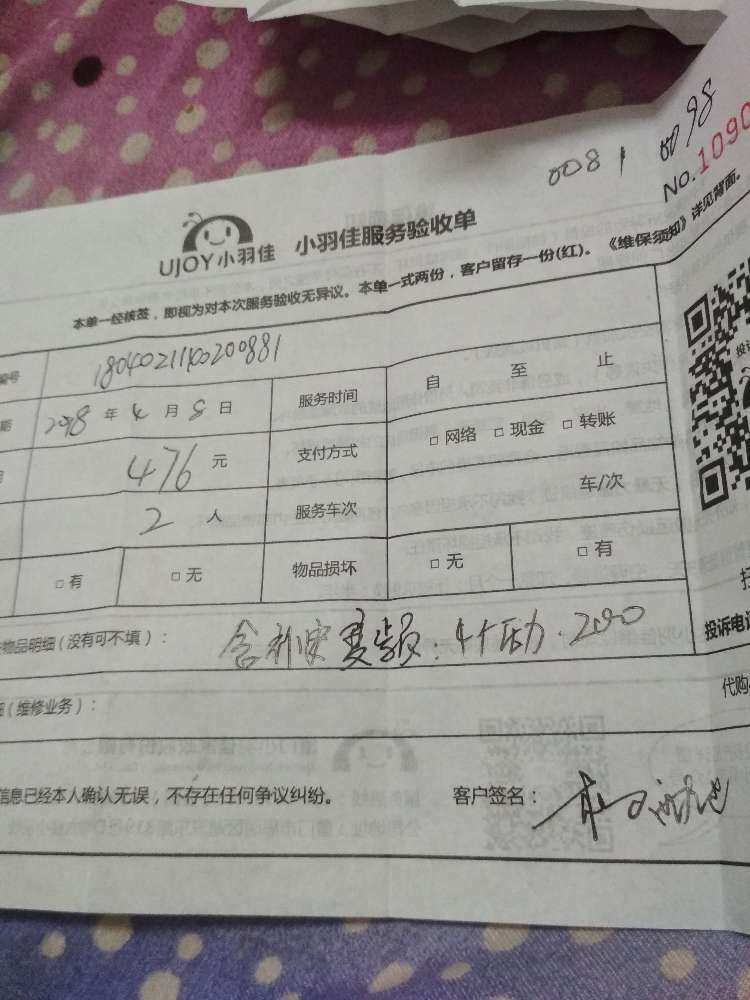 0081 0098
No.1090
UJOY小羽佳 小羽佳服务验收单
本单一经核签，即视为对本次服务验收无异议。本单一式两份，客户留存一份(红)。《维保须知》详见背面。
编号
期 2018 年 4 月 8 日 服务时间 自 至 止
476 元 支付方式 □ 网络 □ 现金 □ 转账
2 人 服务车次 车/次
□ 有 □ 无 物品损坏 □ 无 □ 有
物品明细(没有可不填)：
(维修业务)： 代购
投诉电话
信息已经本人确认无误，不存在任何争议纠纷。 客户签名：